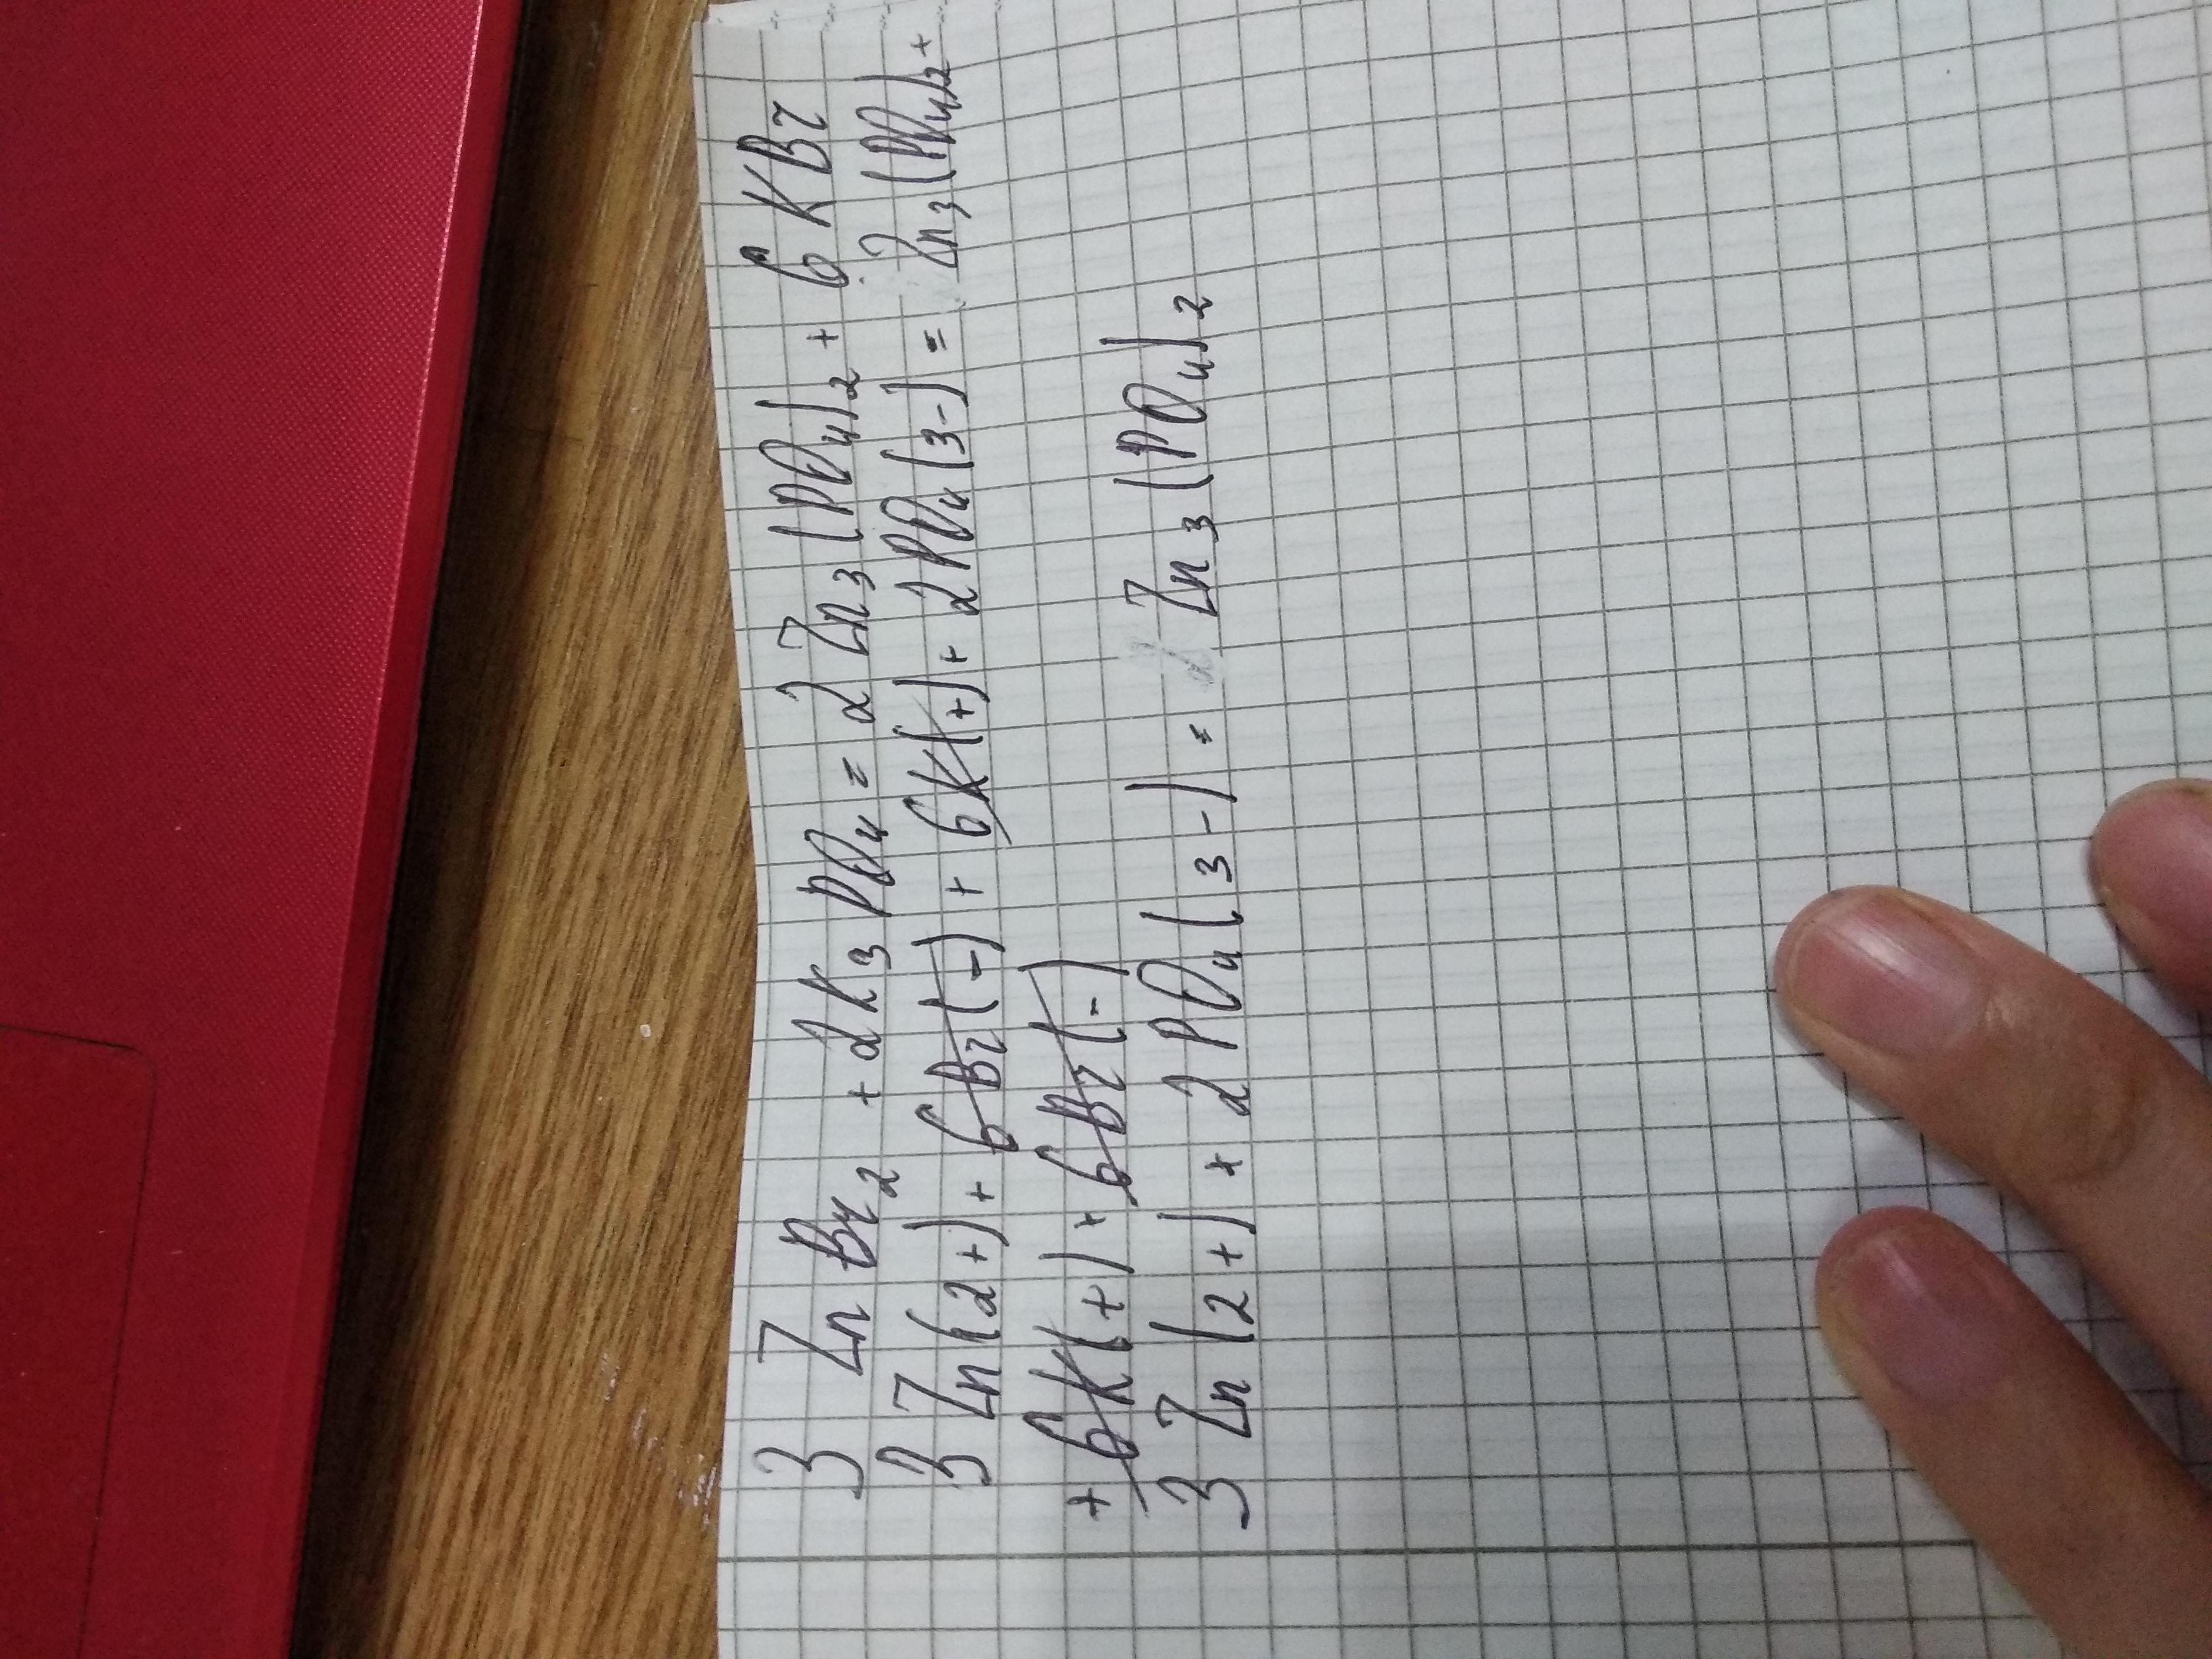 3 ZnBr₂ + 2K₃PO₄ = 2 Zn₃(PO₄)₂ + 6 KBr
3 Zn(2+) + 6Br(-) + 6K(+) + 2PO₄(3-) = Zn₃(PO₄)₂ +
+ 6K(+) + 6Br(-)
3 Zn(2+) + 2PO₄(3-) = Zn₃(PO₄)₂